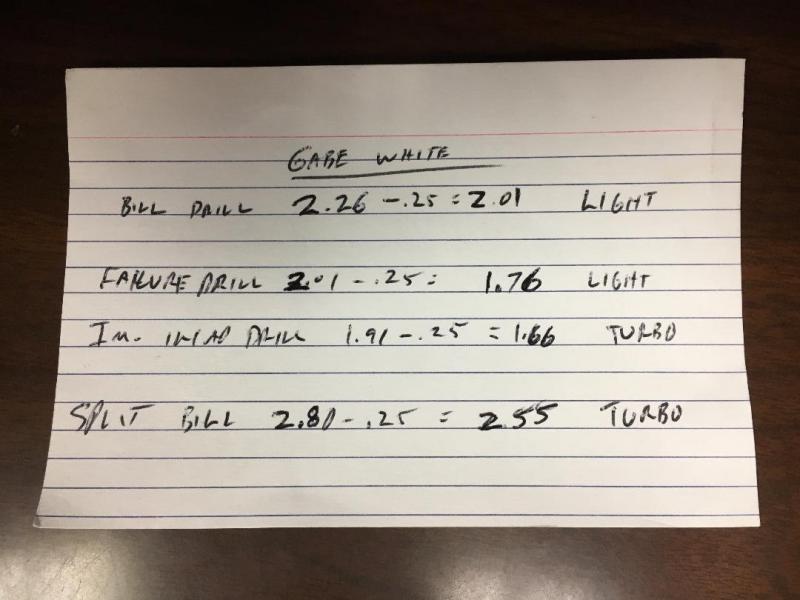 GABE WHITE
BILL DRILL 2.26 - .25 = 2.01 LIGHT
FAILURE DRILL 2.01 - .25 = 1.76 LIGHT
IM. INCAP DRILL 1.91 - .25 = 1.66 TURBO
SPLIT BILL 2.80 - .25 = 2.55 TURBO